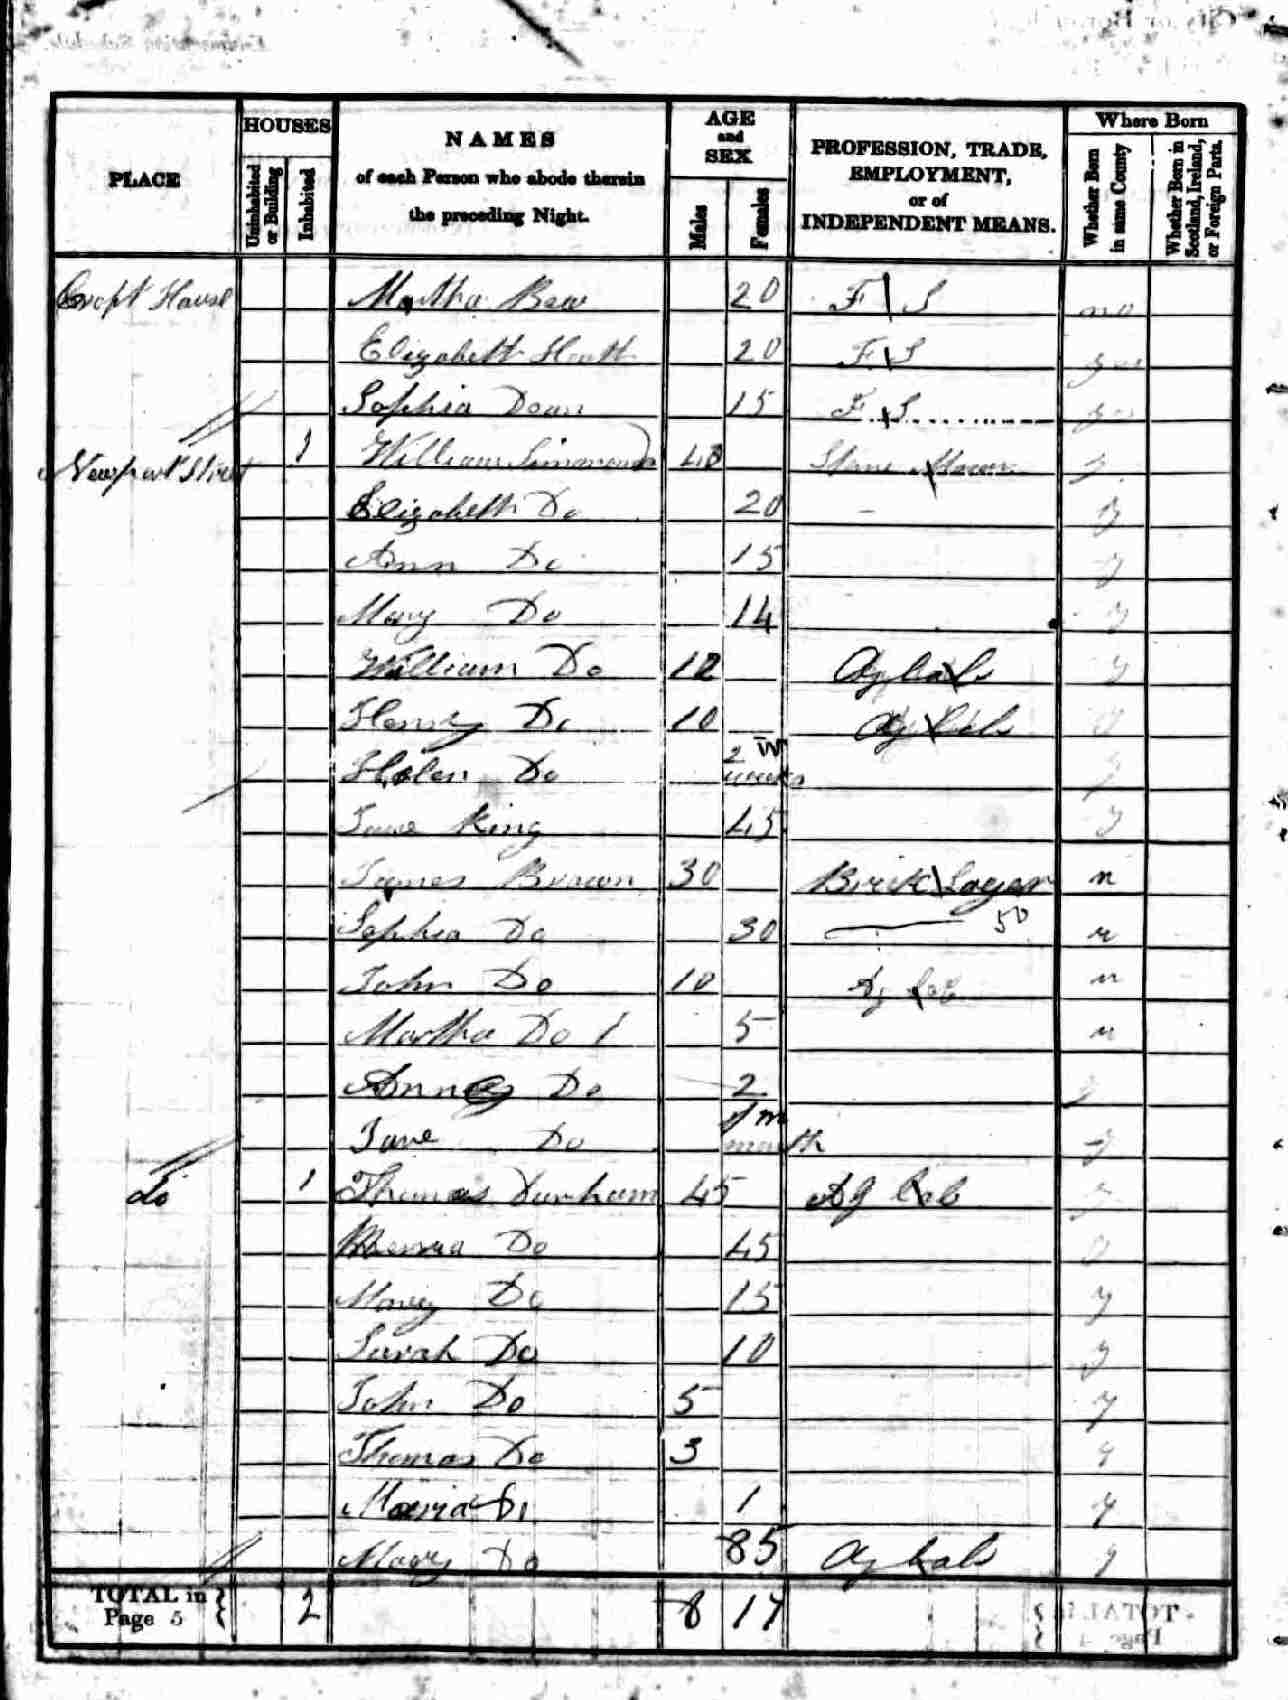 PLACE
HOUSES
Uninhabited or Building
Inhabited
NAMES
of each Person who abode therein
the preceding Night.
AGE
and
SEX
Males
Females
PROFESSION, TRADE,
EMPLOYMENT,
or of
INDEPENDENT MEANS.
Where Born
Whether Born in same County
Whether Born in Scotland, Ireland, or Foreign Parts.
House Martha 20 F S no
Elizabeth 20 F S yes
Sophia Dean 15 F S yes
Newport Street 1 William Simmonds 48 y
Elizabeth Do 20 - y
Ann Do 15 y
Mary Do 14 y
William Do 12 Ag Lab y
Henry Do 10 Ag Lab y
Helen Do 2 W weeks y
Jane King 45 y
James Brown 30 Brick Layer n
Sophia Do 30 50 n
John Do 10 Ag Lab n
Martha Do 5 n
Ann Do 2 y
Jane Do 1 m month y
do 1 Thomas Durham 45 Ag Lab y
Do 45 y
Mary Do 15 y
Sarah Do 10 y
John Do 5 y
Thomas Do 3 y
Maria Do 1 y
Mary Do 85 Ag Lab y
TOTAL in
Page 5 2 8 17